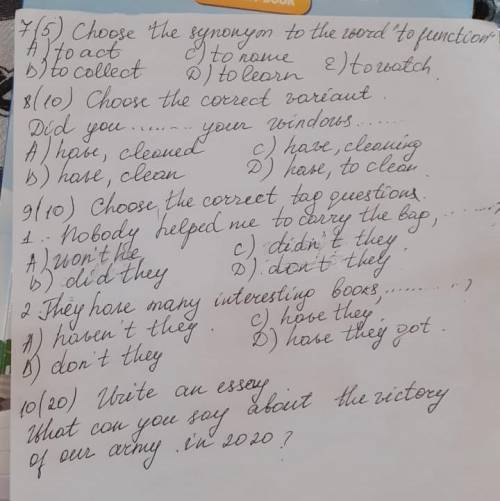 7(5) Choose the synonym to the word "to function"
A) to act C) to name
B) to collect D) to learn E) to watch.
8(10) Choose the correct variant.
Did you ........ your windows ......
A) have, cleaned C) have, cleaning
B) have, clean D) have, to clean.
9(10) Choose the correct tag questions.
1. Nobody helped me to carry the bag, ........?
A) won't he C) didn't they
B) did they D) don't they.
2 They have many interesting books, ........?
A) haven't they. C) have they.
B) don't they D) have they got.
10(20) Write an essay
What can you say about the victory
of our army in 2020?